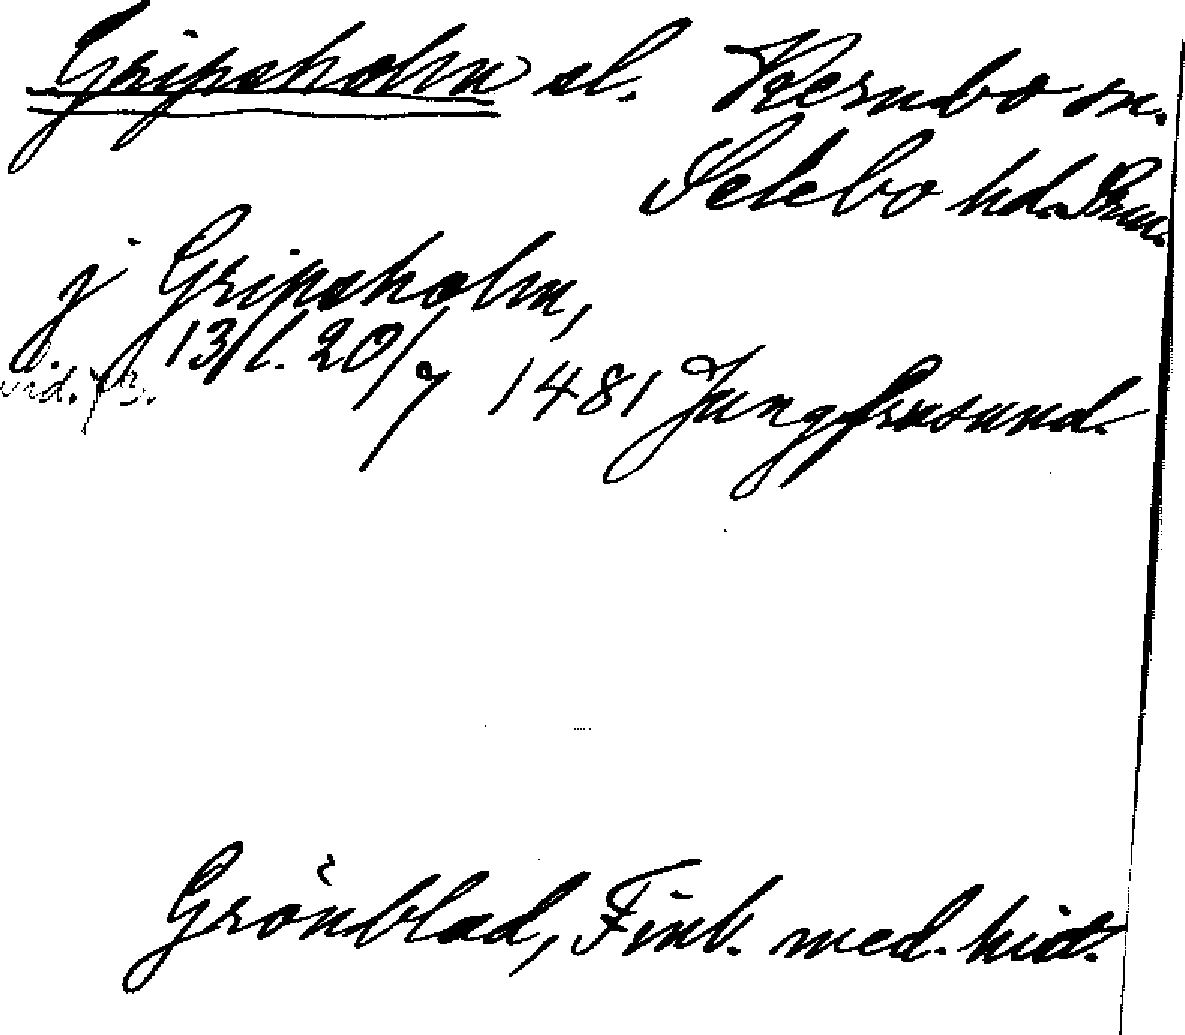 Gripsholm sl. Kernbo sn.
Selebo hd. Srm.
j Gripsholm,
13/1. 20/7 1481 Jungfrusund.
vid.
Grönblad, Finl. med. hist.